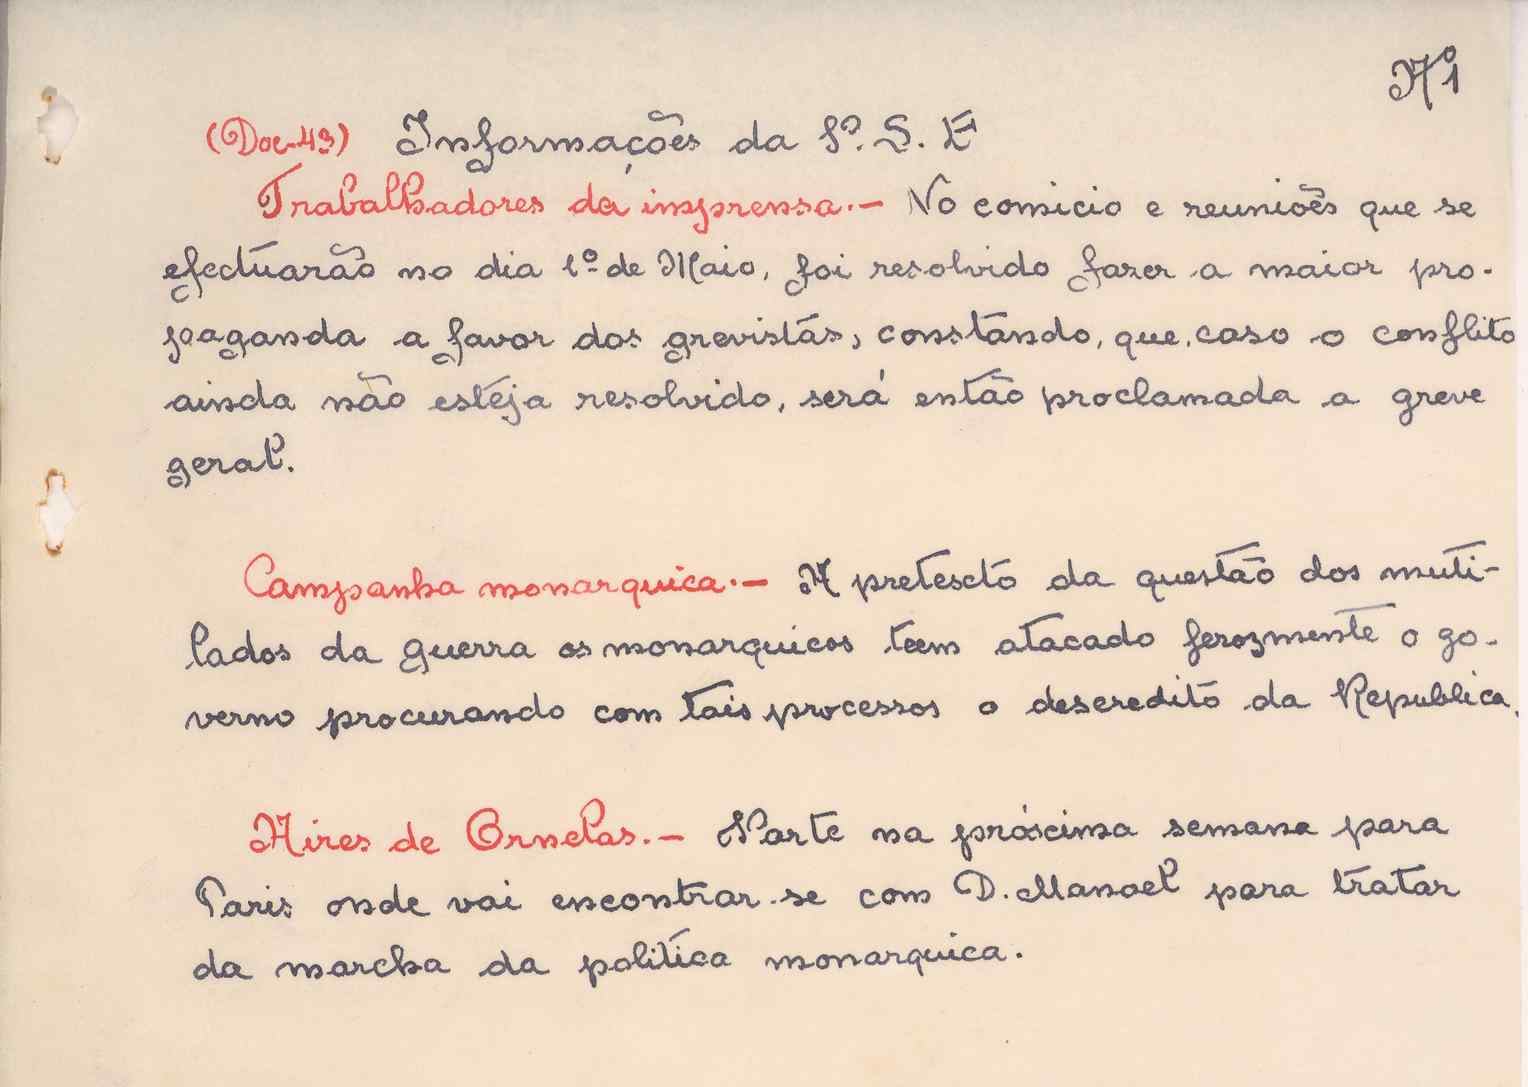 Nº 1
(Doc-43) Informações da P. S. E
Trabalhadores da imprensa.- No comicio e reuniões que se
efectuarão no dia 1º de Maio, foi resolvido fazer a maior pro-
paganda a favor dos grevistas, constando, que, caso o conflito
ainda não esteja resolvido, será então proclamada a greve
geral.
Campanha monarquica.- A pretescto da questão dos muti-
lados da guerra os monarquicos teem atacado ferozmente o go-
verno procurando com tais processos o descredito da Republica.
Aires de Ornelas.- Parte na próscima semana para
Paris onde vai encontrar-se com D. Manoel para tratar
da marcha da politica monarquica.